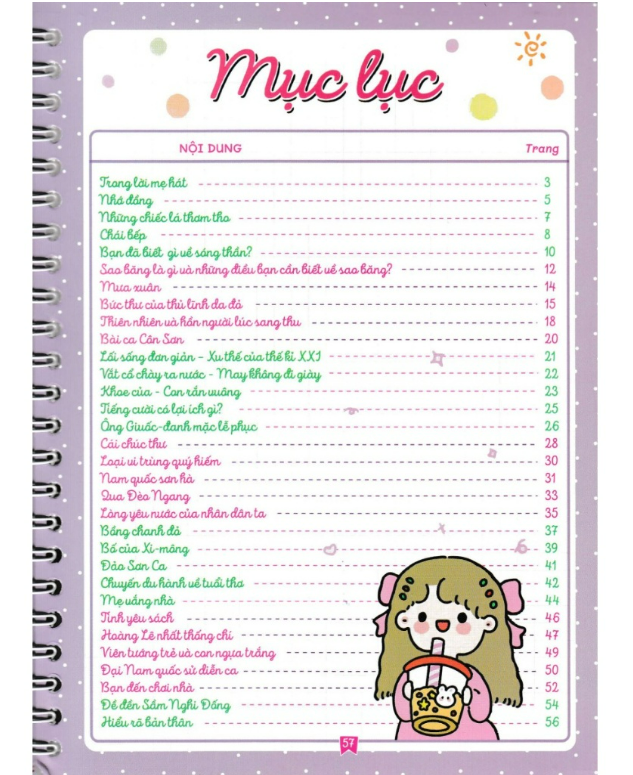 Mục lục
NỘI DUNG Trang
Trong lời mẹ hát 3
Nhớ đồng 5
Những chiếc lá thơm tho 7
Chái bếp 8
Bạn đã biết gì về sóng thần? 10
Sao băng là gì và những điều bạn cần biết về sao băng? 12
Mưa xuân 14
Bức thư của thủ lĩnh da đỏ 15
Thiên nhiên và hồn người lúc sang thu 18
Bài ca Côn Sơn 20
Lối sống đơn giản - Xu thế của thế kỉ XXI 21
Vắt cổ chày ra nước - May không đi giày 22
Khoe của - Con rắn vuông 23
Tiếng cười có lợi ích gì? 25
Ông Giuốc-đanh mặc lễ phục 26
Cái chúc thư 28
Loại vi trùng quý hiếm 30
Nam quốc sơn hà 31
Qua Đèo Ngang 33
Lòng yêu nước của nhân dân ta 35
Bồng chanh đỏ 37
Bố của Xi-mông 39
Đảo Sơn Ca 41
Chuyến du hành về tuổi thơ 42
Mẹ vắng nhà 44
Tình yêu sách 46
Hoàng Lê nhất thống chí 47
Viên tướng trẻ và con ngựa trắng 49
Đại Nam quốc sử diễn ca 50
Bạn đến chơi nhà 52
Đề đền Sầm Nghi Đống 54
Hiểu rõ bản thân 56
57